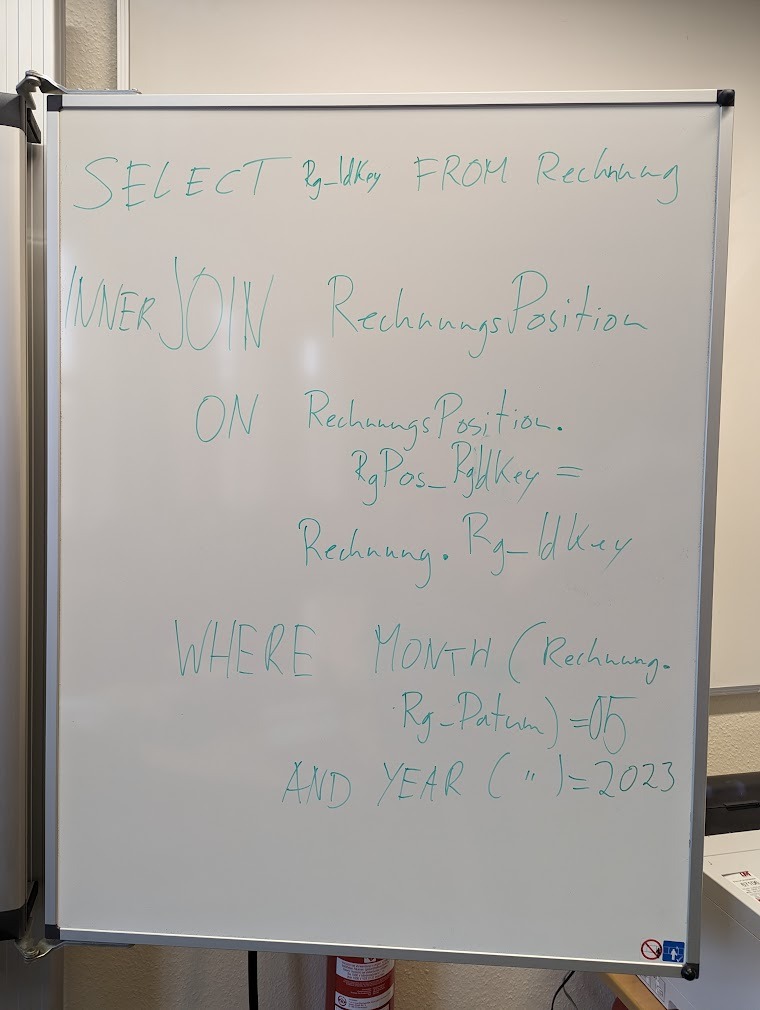 SELECT Rg_IdKey FROM Rechnung
INNER JOIN RechnungsPosition
ON RechnungsPosition.
RgPos_RgIdKey =
Rechnung. Rg_IdKey
WHERE MONTH (Rechnung.
Rg_Datum) = 05
AND YEAR ( " ) = 2023